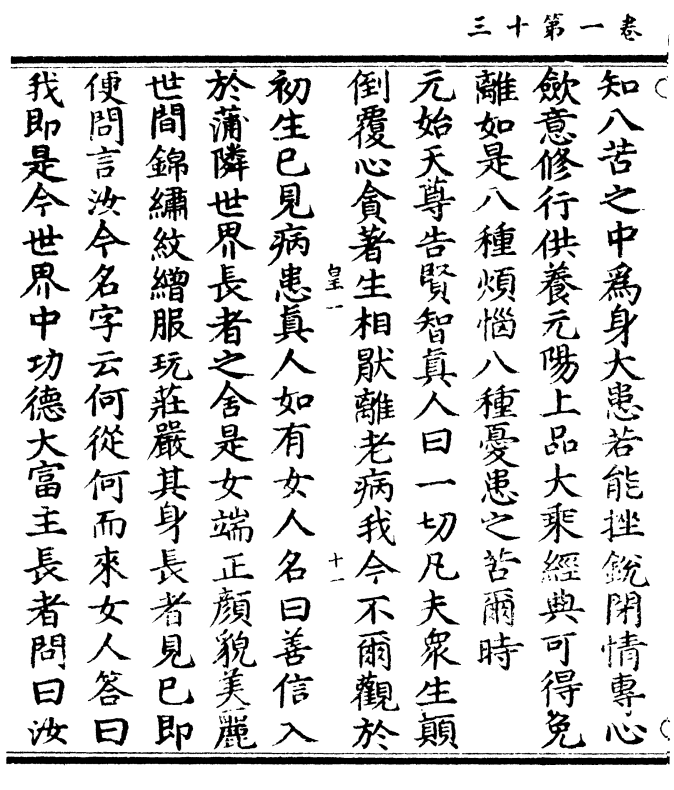 三十第一卷
知八苦之中爲身大患若能挫銳閉情專心
歛意修行供養元陽上品大乘經典可得免
離如是八種煩惱八種憂患之苦爾時
元始天尊告賢智真人曰一切凡夫衆生顛
倒覆心貪著生相厭離老病我今不爾觀於
皇一
十一
初生已見病患真人如有女人名曰善信入
於蒲隣世界長者之舍是女端正顏貌美麗
世間錦繡紋繒服玩莊嚴其身長者見已即
便問言汝今名字云何從何而來女人答曰
我即是今世界中功德大富主長者問曰汝